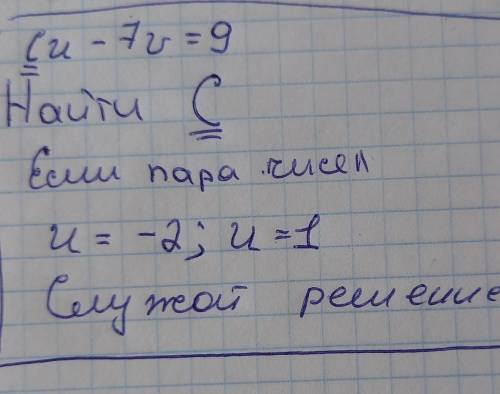 Cu - 7v = 9
Найти C
Если пара чисел
u = -2; u = 1
Служат решение